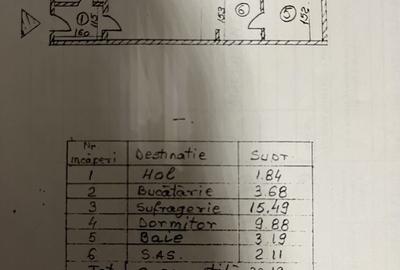 1 115 160 153 6 5 152
Nr. încăperi Destinatie Supr.
1 Hol 1.84
2 Bucătărie 3.68
3 Sufragerie 15.49
4 Dormitor 9.88
5 Baie 3.19
6 S.A.S. 2.11